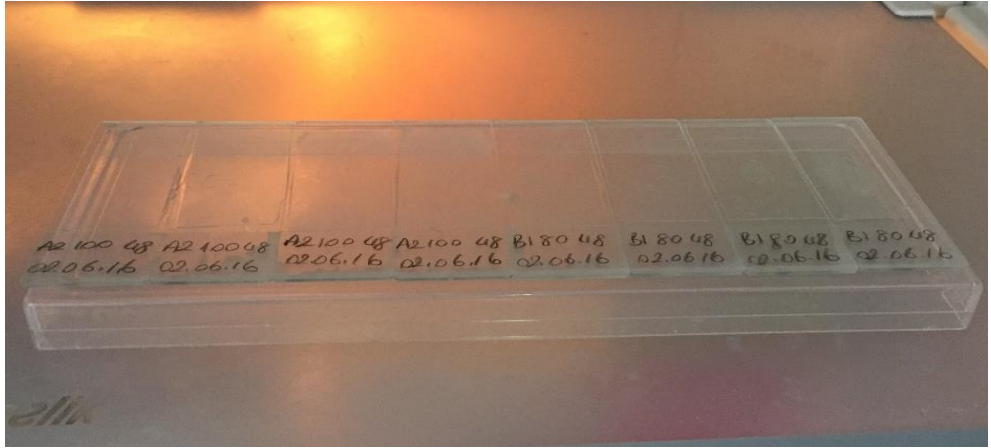 A2 100 48
02.06.16
A2 100 48
02.06.16
A2 100 48
02.06.16
A2 100 48
02.06.16
B1 80 48
02.06.16
B1 80 48
02.06.16
B1 80 48
02.06.16
B1 80 48
02.06.16